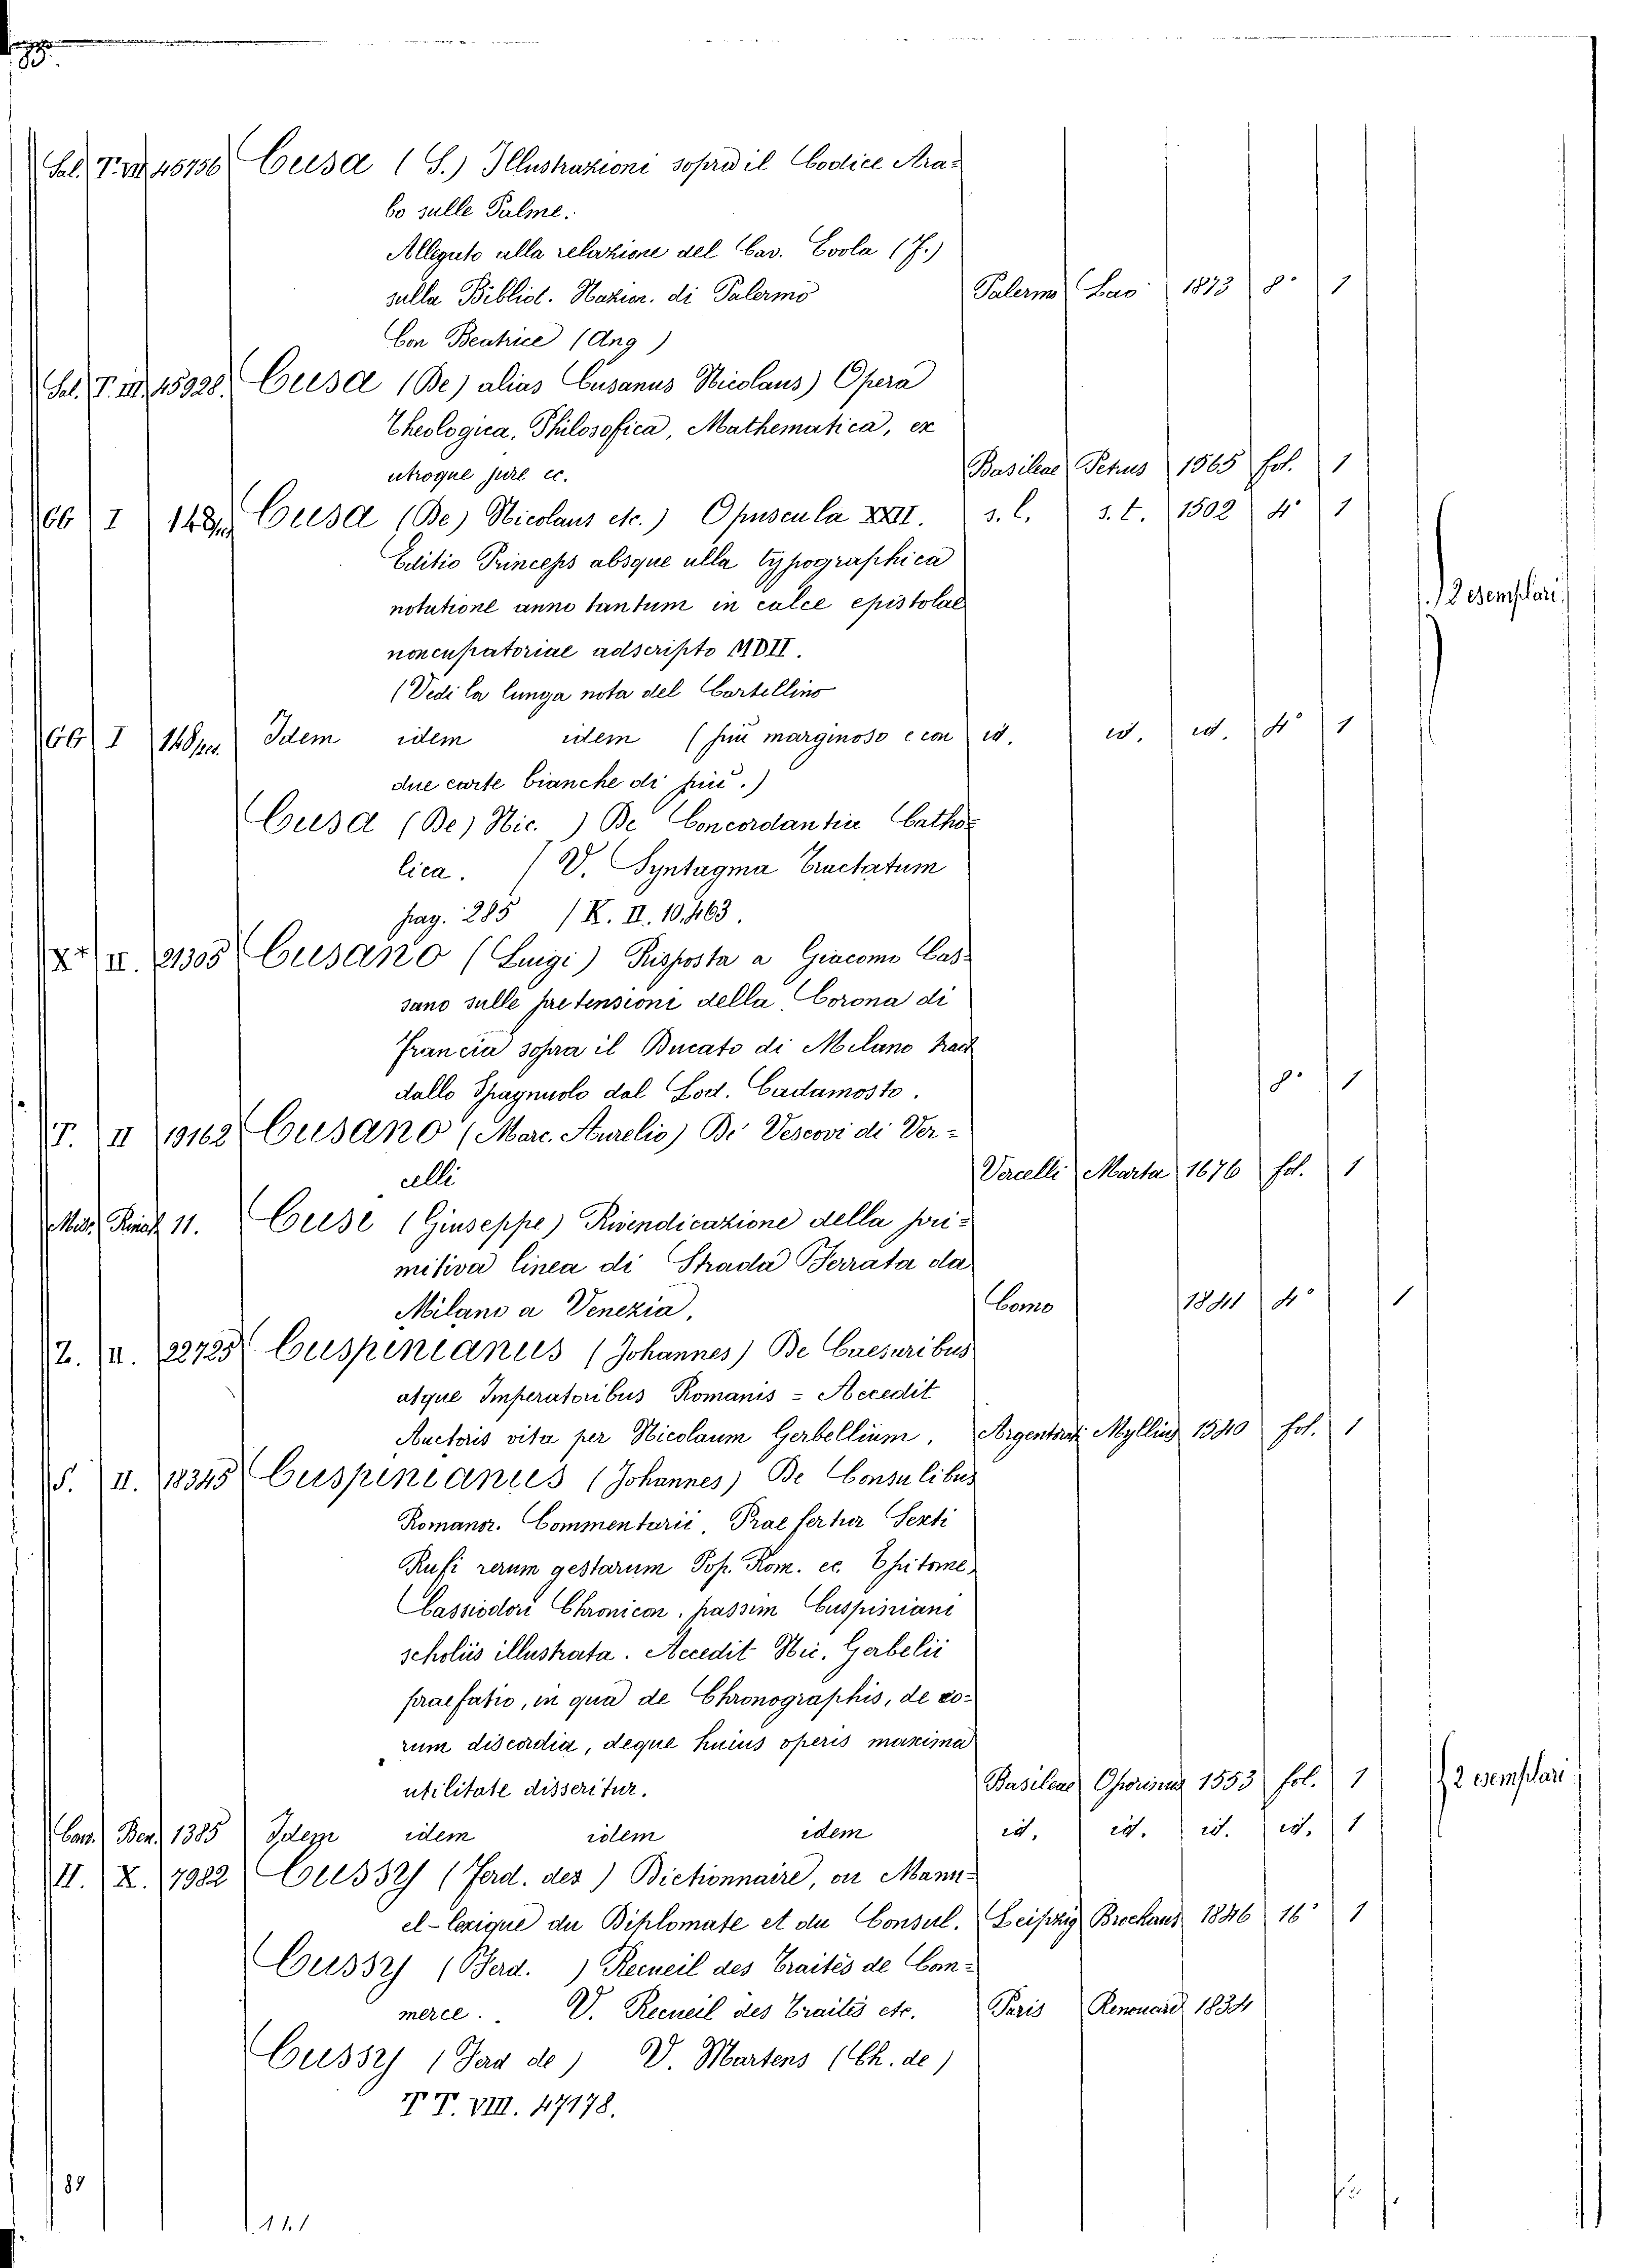 Sal. T. VII 45756 Cusa (S.) Illustrazioni sopra il Codice Ara-
bo sulle Palme.
Allegato alla relazione del Cav. Evola (F.)
sulla Bibliot. Nazion. di Palermo Palermo Lao 1873 8° 1
Con Beatrice (Ang )
Sal. T. III. 45928. Cusa (De) alias Cusanus Nicolaus) Opera
Theologica, Philosofica, Mathematica, ex
utroque jure ec. Basileae Petrus 1565 fol. 1
66 I 148 Cusa (De) Nicolaus etc.) Opuscula XXII. s. l. s. t. 1502 4° 1
Editio Princeps absque ulla typographica
notatione anno tantum in calce epistolae
noncupatoriae adscripto MDII.
2 esemplari
(Vedi la lunga nota del Cartellino
66 I 148 Idem idem idem (più marginoso e con id. id. id. 4° 1
due carte bianche di più.)
Cusa (De) Nic. ) De Concordantia Catho-
lica. (V. Syntagma Tractatum
pag. 285 (K. II. 10,463.
X II. 21305 Cusano (Luigi) Risposta a Giacomo Cas-
sano sulle pretensioni della Corona di
Francia sopra il Ducato di Milano trad
dallo Spagnuolo dal Lod. Cadamosto. 8° 1
T. II 19162 Cusano (Marc. Aurelio) De' Vescovi di Ver-
celli Vercelli Marta 1676 fol. 1
Mis. 11. Cuse (Giuseppe) Rivendicazione della pri-
mitiva linea di Strada Ferrata da
Milano a Venezia. Como 1841 4° 1
Z. II. 22725 Cuspinianus (Johannes) De Caesaribus
atque Imperatoribus Romanis = Accedit
Auctoris vita per Nicolaum Gerbellium. Argentorat. Myllius 1540 fol. 1
S. II. 18345 Cuspinianus (Johannes) De Consulibus
Romanor. Commentarii. Praefertur Sexti
Rufi rerum gestarum Pop. Rom. ec. Epitome,
Cassiodori Chronicon, passim Cuspiniani
scholiis illustrata. Accedit Nic. Gerbelii
praefatio, in qua de Chronographis, de eo-
rum discordia, deque huius operis maxima
utilitate disseritur. Basileae Oporinus 1553 fol. 1 2 esemplari
Cas. Ben. 1385 Idem idem idem idem id. id. id. id. 1
II. X. 7982 Cussy (Ferd. des) Dictionnaire, ou Manu-
el-lexique du Diplomate et du Consul. Leipzig Brockaus 1846 16° 1
Cussy (Ferd. ) Recueil des Traités de Com-
merce. V. Recueil des Traités etc. Paris Renouard 1834
Cussy (Ferd de) V. Martens (Ch. de)
T T. VIII. 47178.
89
111